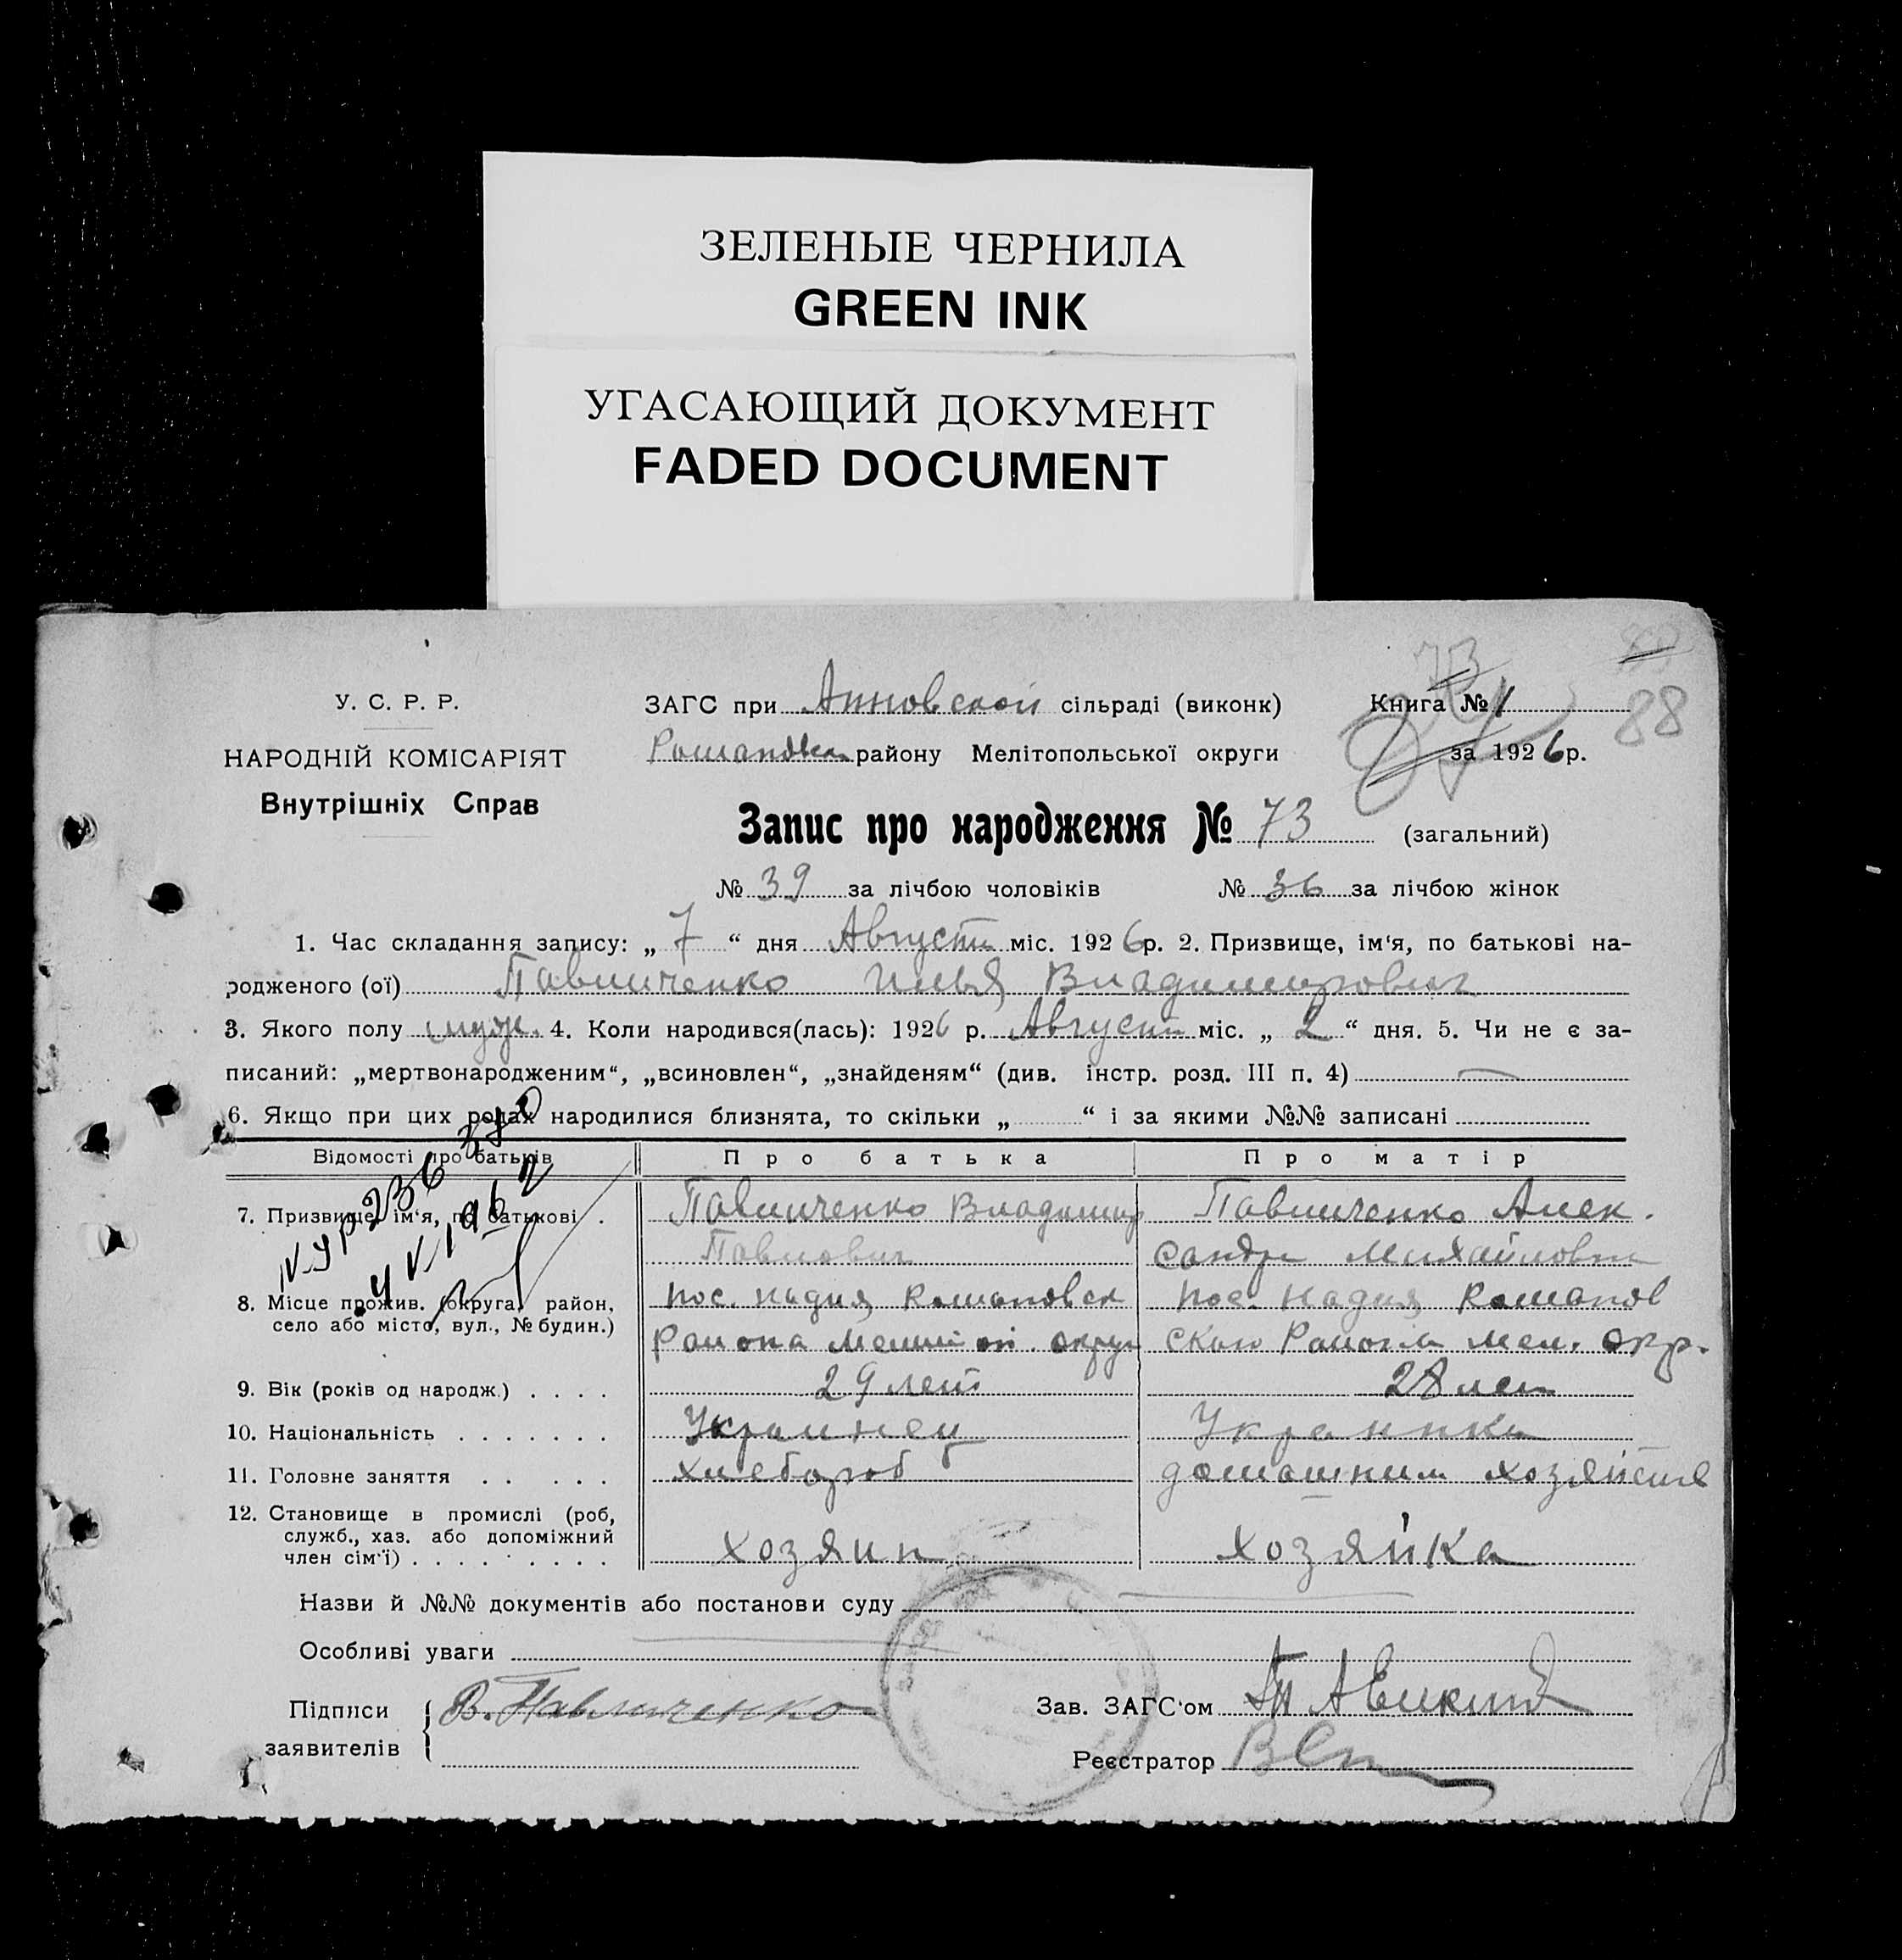 ЗЕЛЕНЫЕ ЧЕРНИЛА
GREEN INK
УГАСАЮЩИЙ ДОКУМЕНТ
FADED DOCUMENT
73
88
У. С. Р. Р.
ЗАГС при Анновской сільраді (виконк)
Книга № 1
НАРОДНІЙ КОМІСАРІЯТ
Внутрішніх Справ
Романовск району Мелітопольської округи
за 1926 р.
Запис про народження № 73 (загальний)
№ 39 за лічбою чоловіків № 36 за лічбою жінок
1. Час складання запису: „ 7 “ дня Августа міс. 1926 р. 2. Призвище, ім‘я, по батькові на-
родженого (ої) Павличенко Илья Владимирович
3. Якого полу муж. 4. Коли народився(лась): 1926 р. Август міс. „ 2 “ дня. 5. Чи не є за-
писаний: „мертвонародженим“, „всиновлен“, „знайденям“ (див. інстр. розд. III п. 4)
6. Якщо при цих родах народилися близнята, то скільки „ “ і за якими №№ записані
Відомості про батьків Про батька Про матір
7. Призвище, ім‘я, по батькові . Павличенко Владимир Павличенко Алек.
Павлович сандра Михайловна
8. Місце прожив. (округа, район, пос. Надия Романовск пос. Надия Романов
село або місто, вул., № будин.) Района Мелитоп. округ ского Района Мел. окр.
9. Вік (років од народж.) . . . . 29 лет 28 лет
10. Національність . . . . . . . Украинец Украинка
11. Головне заняття . . . . . Хлебороб домашним хозяйств
12. Становище в промислі (роб,
служб., хаз. або допоміжний
член сім‘ї) . . . . . . . . . . Хозяин Хозяйка
Назви й №№ документів або постанови суду
Особливі уваги
Підписи В. Павличенко
заявителів
Зав. ЗАГС‘ом
Реєстратор